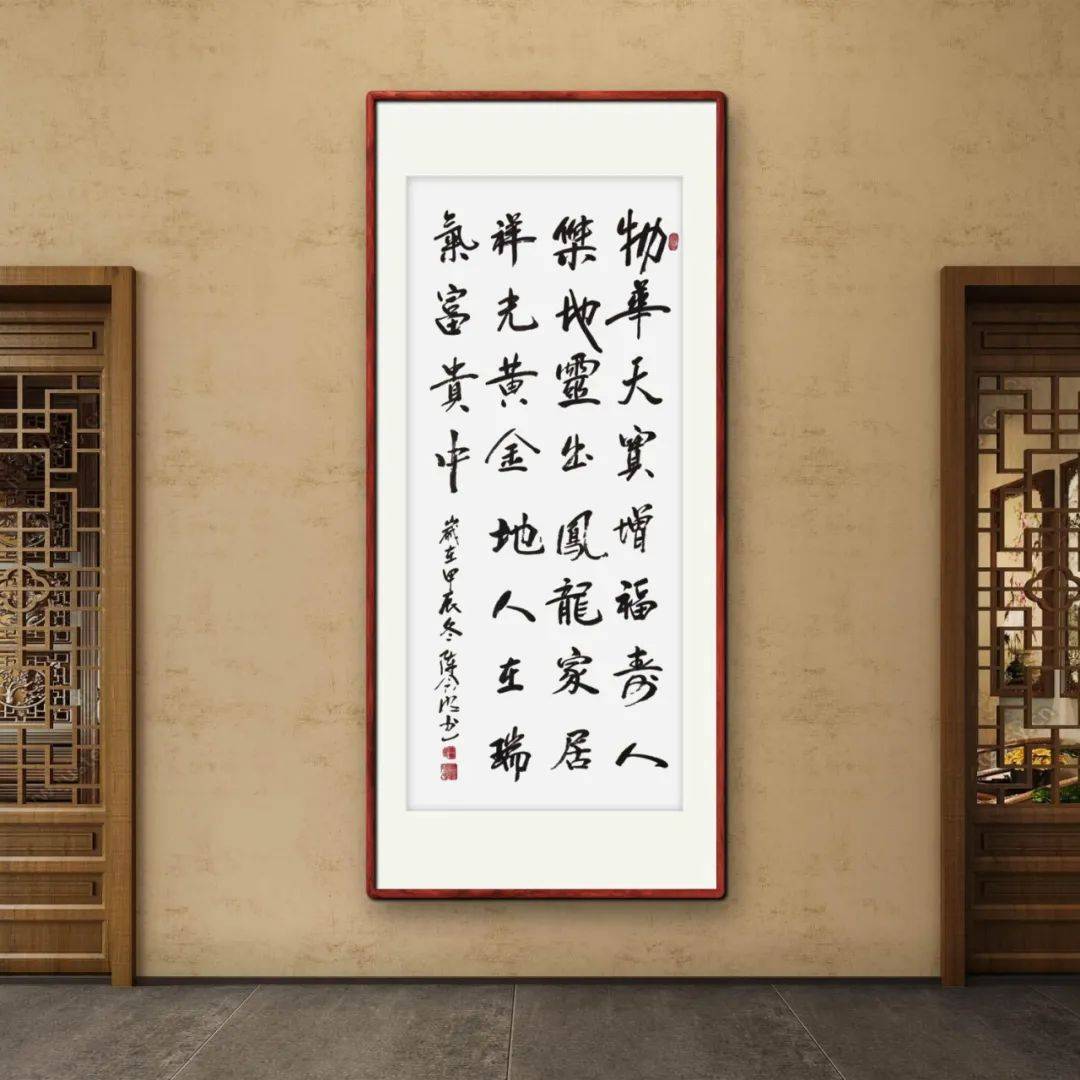 物華天寳增福壽人
傑地靈出鳳龍家居
祥光黄金地人在瑞
氣富貴中
歲在甲辰冬陳